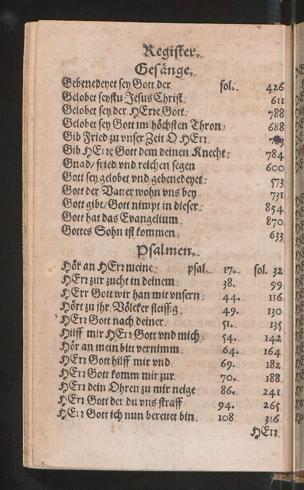 Register.
Gesänge.
Gebenedeyet sey Gott der fol. 426
Gelobet seystu Jesus Christ. 611
Gelobet sey der HErre Gott. 788
Gelobet sey Gott im höchsten Thron. 688
Gib Fried zu vnser Zeit O HErr.
Gib HErre Gott dem deinen Knecht. 784
Gnad/ fried vnd reichen segen 600
Gott sey gelobet vnd gebenedeyet. 573
Gott der Vatter wohn vns bey. 731
Gott gibt/ Gott nimpt in dieser. 854
Gott hat das Evangelium. 870
Gottes Sohn ist kommen. 633
Psalmen.
Hör an HErr meine. psal. 17. fol. 32
HErr zur zucht in deinem. 38. 99
HErr Gott wir han mit vnsern. 44. 116
Hört zu ihr Völcker fleissig. 49. 130
HErr Gott nach deiner. 51. 135
Hilff mir HErr Gott vnd mich. 54. 142
Hör an mein bitt vernimm. 64. 164
HErr Gott hilff mir vnd. 69. 182
HErr Gott komm mir zur. 70. 188
HErr dein Ohren zu mir neige 86. 241
HErr Gott der du vns straff 94. 265
HErr Gott ich nun bereitet bin. 108 316
HErr